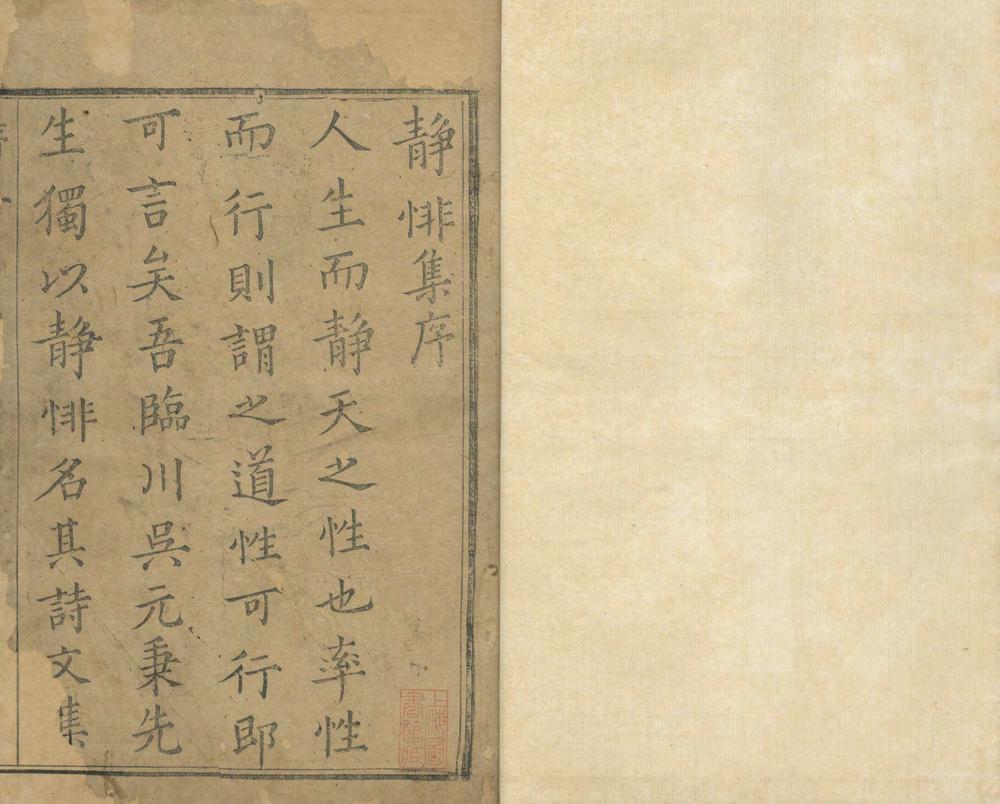 静悱集序
人生而静天之性也率性
而行則謂之道性可行即
可言矣吾臨川吳元秉先
生獨以静悱名其詩文集
上海圖書館藏